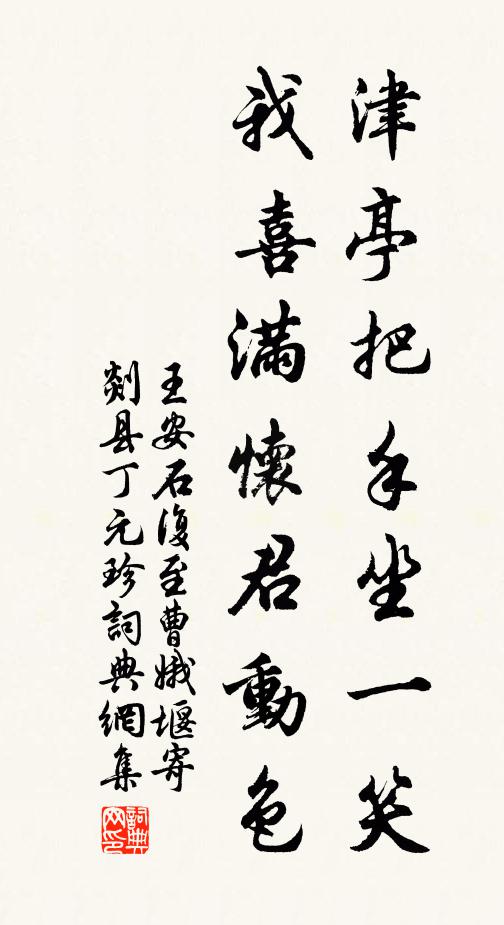 津亭把手坐一笑
我喜滿懷君動色
王安石復至曹娥堰寄
剡县丁元珍詞典網集
詞典网印